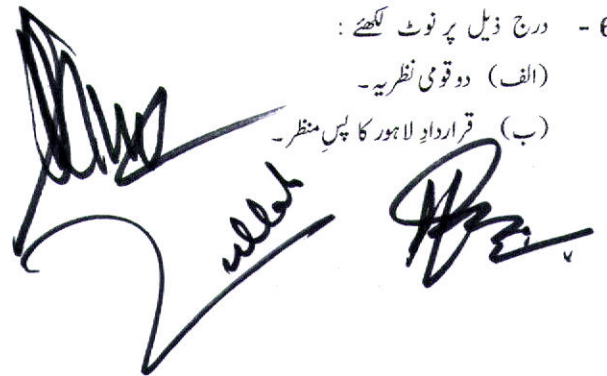 6 - درج ذیل پر نوٹ لکھئے :
(الف) دو قومی نظریہ۔
(ب) قراردادِ لاہور کا پس منظر۔
ullah